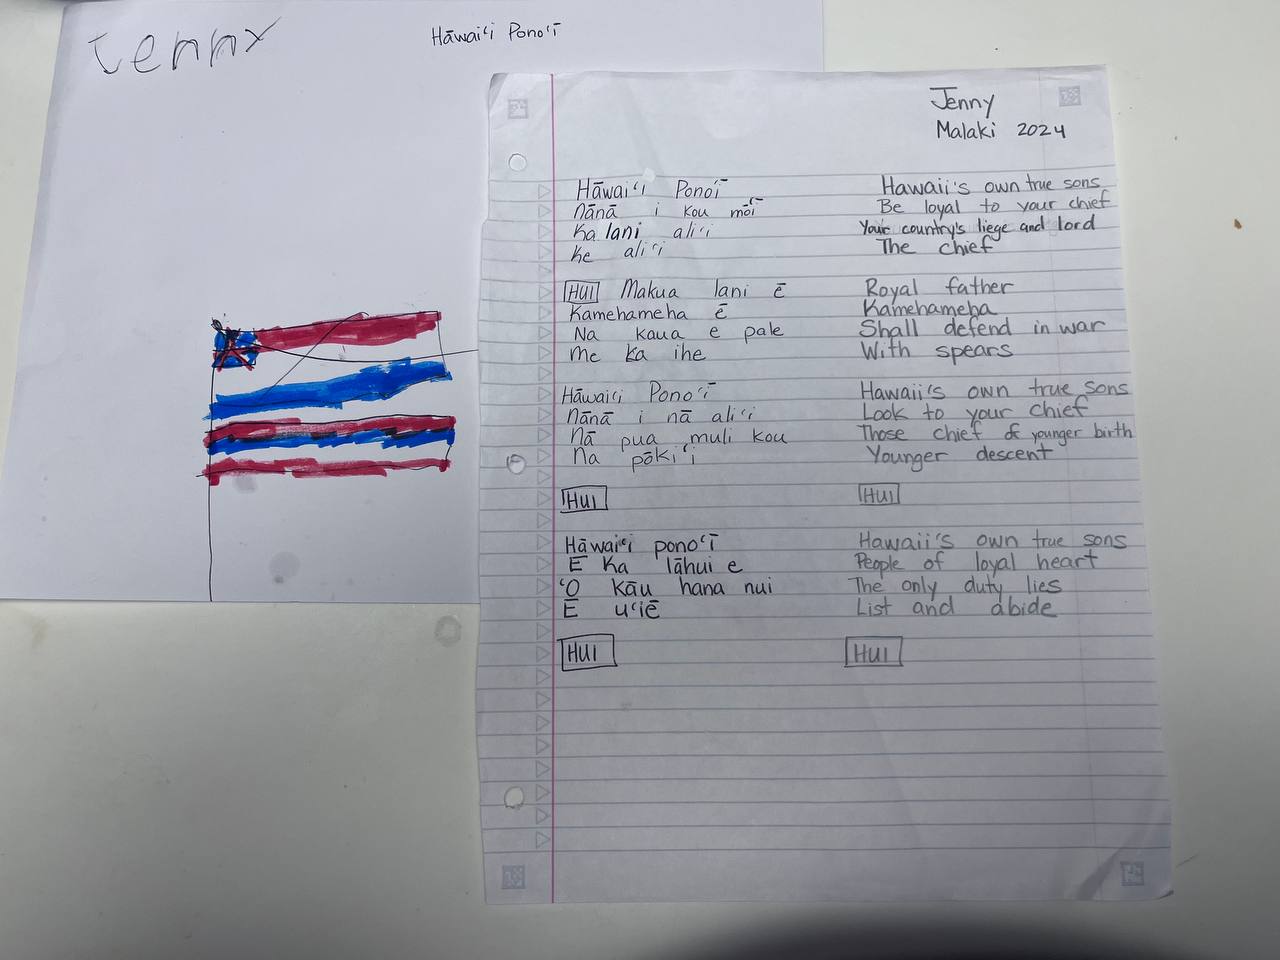 Jenny
Hāwaiʻi Ponoʻī
Jenny
Malaki 2024
Hāwaiʻi Ponoʻī
Nānā i kou mōʻī
Ka lani aliʻi
Ke aliʻi
HUI Makua lani ē
Kamehameha ē
Na kaua e pale
Me ka ihe
Hāwaiʻi Ponoʻī
Nānā i nā aliʻi
Nā pua muli kou
Na pōkiʻi
HUI
Hāwaiʻi ponoʻī
E Ka lāhui e
ʻO Kāu hana nui
E uʻiē
HUI
Hawaii's own true sons
Be loyal to your chief
Your country's liege and lord
The chief
Royal father
Kamehameha
Shall defend in war
With spears
Hawaii's own true sons
Look to your chief
Those chief of younger birth
Younger descent
HUI
Hawaii's own true sons
People of loyal heart
The only duty lies
List and abide
HUI